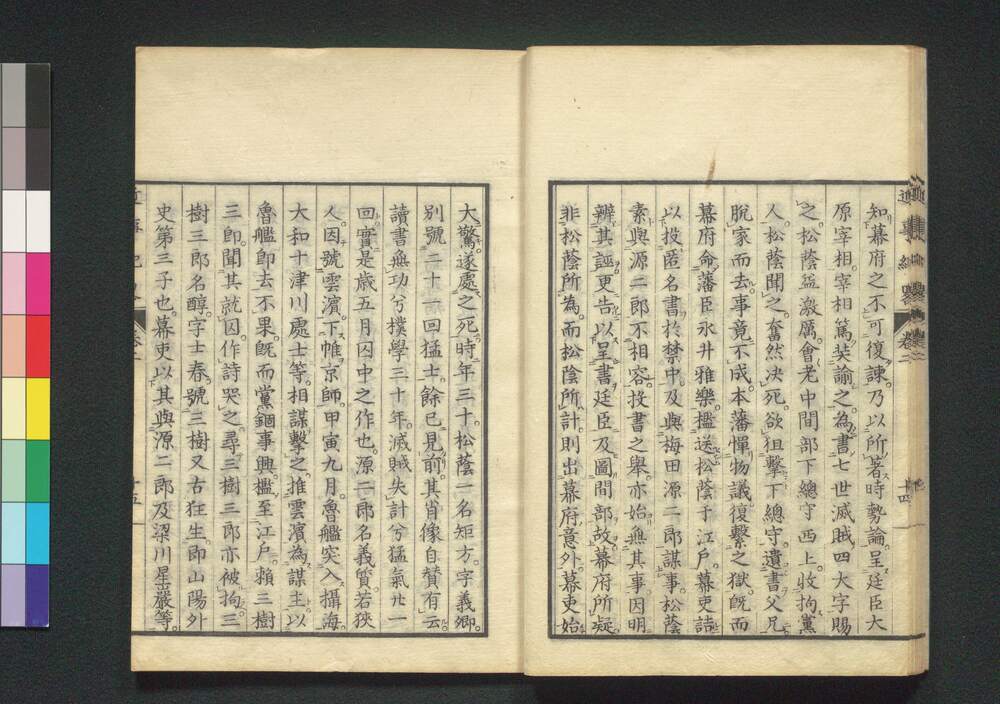 知幕府之不可復諫乃以所著時勢論呈廷臣大
原宰相宰相篤奘諭之為書七世滅賊四大字賜
之松蔭益激厲會老中間部下總守西上收拘黨
人松蔭聞之奮然決死欲狙擊下總守遺書父兄
脫家而去事竟不成本藩憚物議復繫之獄既而
幕府命藩臣永井雅樂檻送松蔭于江戶幕吏詰
以投匿名書於禁中及與梅田源二郎謀事松蔭
素與源二郎不相容投書之舉亦始無其事因明
辨其誣更告以呈書廷臣及圖間部故幕府所疑
非松蔭所為而松陰所計則出幕府意外幕吏始
大驚遂處之死時年三十松蔭一名矩方字義卿
別號二十一回猛士餘已見前其肖像自贊有云
讀書無功兮樸學三十年滅賊失計兮猛氣廿一
回實是歲五月囚中之作也源二郎名義質若狹
人因號雲濱下帷京師甲寅九月魯艦突入攝海
大和十津川處士等相謀擊之推雲濱為謀主以
魯艦即去不果既而黨錮事興檻至江戶賴三樹
三郎聞其就囚作詩哭之尋三樹三郎亦被拘三
樹三郎名醇字士春號三樹又古狂生即山陽外
史第三子也幕吏以其與源二郎及梁川星巖等